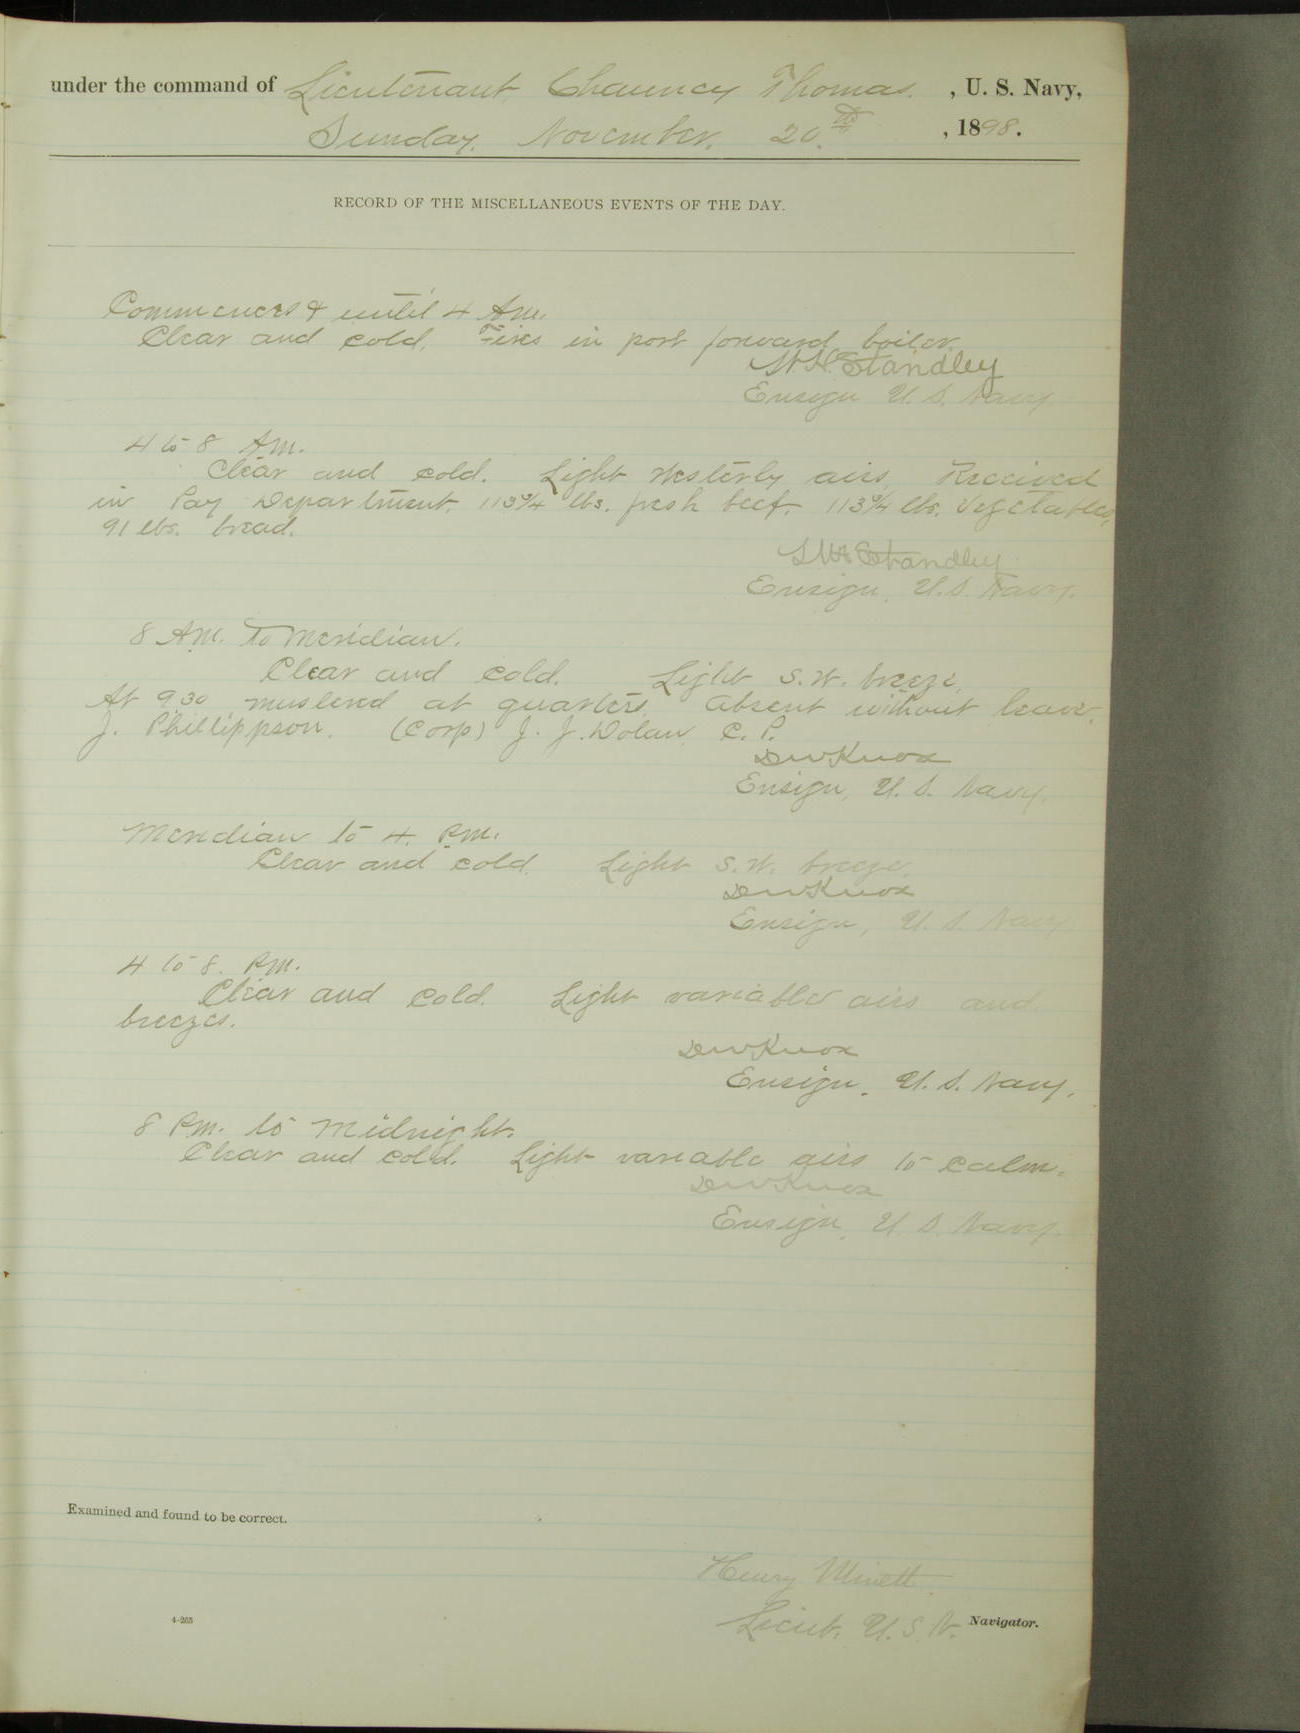 under the command of Lieutenant Chauncey Thomas. , U. S. Navy,
Sunday, November, 20th. , 1898.
RECORD OF THE MISCELLANEOUS EVENTS OF THE DAY.
Commences & until 4 Am.
Clear and cold. Fires in port forward boiler.
W H Standley
Ensign U. S. Navy.
4 to 8 Am.
Clear and cold. Light Westerly airs. Received
in Pay Department. 113 3/4 lbs. fresh beef. 113 3/4 lbs. Vegetables,
91 lbs. bread.
Standley
Ensign, U. S. Navy.
8 Am. to Meridian.
Clear and cold. Light S. W. breeze.
At 9 30 mustered at quarters. Absent without leave,
J. Phillippson. (Corp) J. J. Dolan. C. P.
D W Knox
Ensign, U. S. Navy.
Meridian to 4. Pm.
Clear and cold. Light S. W. breeze.
D W Knox
Ensign, U. S. Navy.
4 to 8. Pm.
Clear and cold. Light variable airs and
breezes.
D W Knox
Ensign. U. S. Navy.
8 Pm. to Midnight.
Clear and cold. Light variable airs to calm.
D W Knox
Ensign, U. S. Navy.
Examined and found to be correct.
Henry Minett.
4-265 Lieut. U. S. N. Navigator.